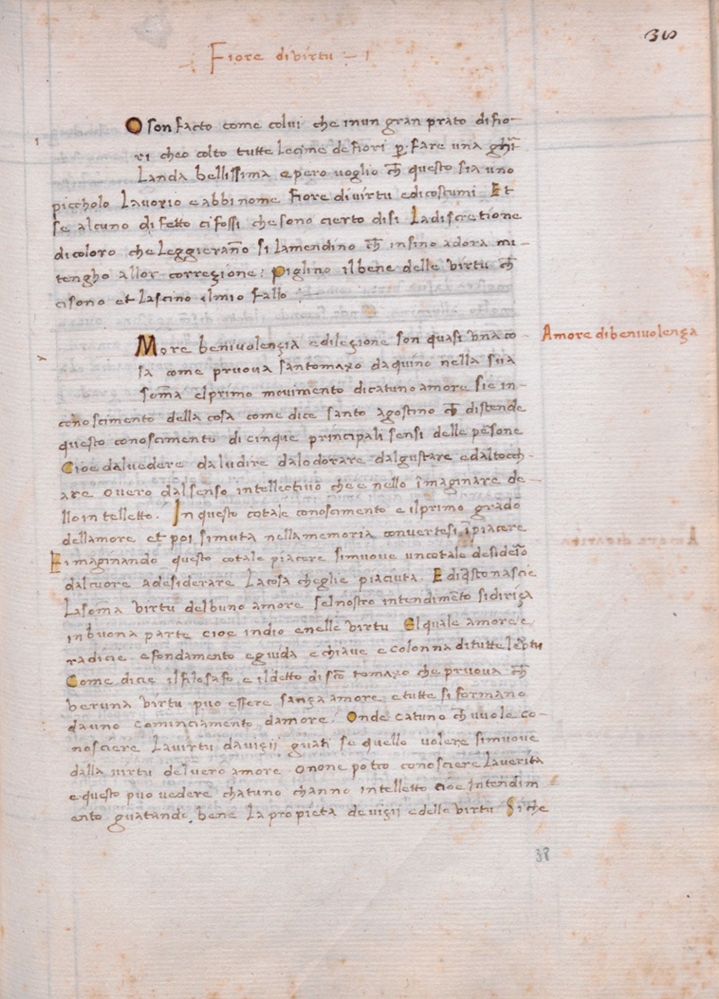 Fiore divirtu – I
O son facto come colui che inun gran prato di fio-
ri cheo colto tutte Lecime de fiori p fare una ghir
Landa bellissima e pero voglio ch questo sia uno
picholo Lavorio e abbi nome Fiore divirtu e dicostumi Et
se alcuno difetto ci fossi che sono cierto di si La discretione
di coloro che Leggierano si Lamendino ch in sino adora mi
tengho allor corregione: Piglino il bene delle virtu ch
ci sono et Lascino il mio fallo
Amore dibenivolenza
More benivolenzia e dilezione son quasi una co-
sa come pruova santomaxo daquino nella sua
soma el primo movimento di catuno amore sie in-
conoscimento della cosa come dice santo agostino ch distende
questo conoscimento di cinque principali sensi delle pesone
Cioe dal vedere da ludire dalo dorare dal gustare e dal tocch-
are overo dal senso intellectivo che e nello imaginare de-
llo in telletto. In questo cotale conoscimento e il primo grado
dellamore et poi simuta nella memoria convertesi i piacere
E imaginando questo cotale piacere simuove un cotale desiderio
dal cuore a desiderare La cosa che glie piaciuta. E di qsto nascie
La soma virtu del buno amore sel nostro intendimeto si diriza
in buona parte cioe indio e nelle virtu El quale amore e
radicie e fondamento e guida e chiave e colonna di tutte le
Come dicie il filosafo e il detto di sco tomaxo che pruova ch
veruna virtu puo essere sanza amore e tutte si formano
da uno cominciamento damore. Onde catuno ch vuole co-
nosciere La virtu da vizii guati se quello volere simuove
dalla virtu del vero amore o none potra conosciere La verita
e questo puo vedere chatuno channo intelletto cioe Intendim
ento guatando bene La propieta de vizii e delle virtu Si che
38